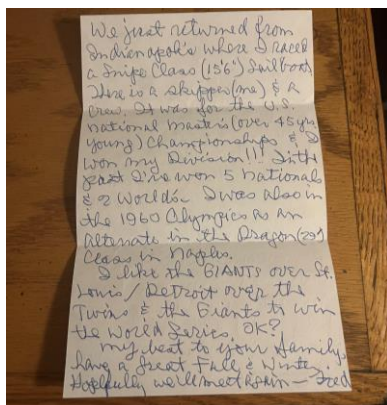 We just returned from
Indianapolis where I raced
a Snipe Class (15'6") Sailboat.
There is a skipper (me) & a
crew. It was for the U.S.
national masters (over 45 yrs
young) Championships & I
won my Division!!! In the
past I've won 5 nationals
& 2 Worlds. I was also in
the 1960 Olympics as an
alternate in the Dragon (29')
Class in Naples.
I like the GIANTS over St.
Louis / Detroit over the
Twins & the Giants to win
the World Series. OK?
My best to your family,
have a great Fall & Winter.
Hopefully we'll meet again — Fred